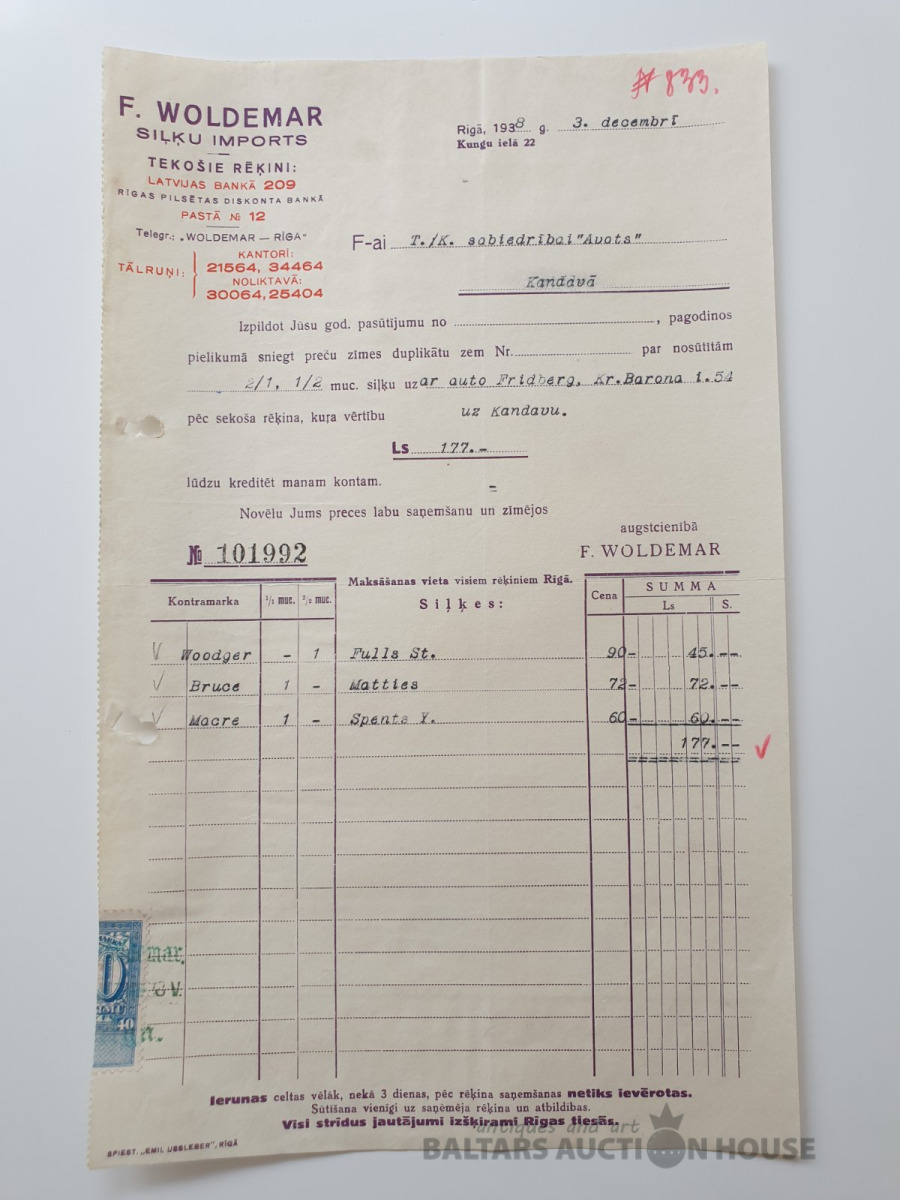 # 833.
F. WOLDEMAR
SIĻĶU IMPORTS
TEKOŠIE RĒĶINI:
LATVIJAS BANKĀ 209
RĪGAS PILSĒTAS DISKONTA BANKĀ
PASTĀ № 12
Telegr.: „WOLDEMAR — RĪGA"
TĀLRUŅI:
KANTORĪ:
21564, 34464
NOLIKTAVĀ:
30064, 25404
Rīgā, 1938 g. 3. decembrī
Kungu ielā 22
F-ai T./K. sabiedrībai "Avots"
Kandavā
Izpildot Jūsu god. pasūtījumu no , pagodinos
pielikumā sniegt preču zīmes duplikātu zem Nr. par nosūtītām
2/1, 1/2 muc. siļķu uz ar auto Fridberg, Kr.Barona i.54
pēc sekoša rēķina, kuŗa vērtību uz Kandavu.
Ls 177.-
lūdzu kreditēt manam kontam. -
Novēlu Jums preces labu saņemšanu un zīmējos
augstcienībā
№ 101992 F. WOLDEMAR
Maksāšanas vieta visiem rēķiniem Rīgā.
Kontramarka ¹/₁ muc. ¹/₂ muc. Siļķes: Cena SUMMA
Ls S.
V Woodger - 1 Fulls St. 90- 45.--
V Bruce 1 - Matties 72- 72.--
V Macre 1 - Spents Y. 60- 60.--
177.--
mar.
40
Ierunas celtas vēlāk, nekā 3 dienas, pēc rēķina saņemšanas netiks ievērotas.
Sūtīšana vienīgi uz saņēmēja rēķina un atbildības.
Visi strīdus jautājumi izšķirami Rīgas tiesās.
SPIEST. „EMIL USSLEBER", RĪGĀ
antiques and art
BALTARS AUCTION HOUSE